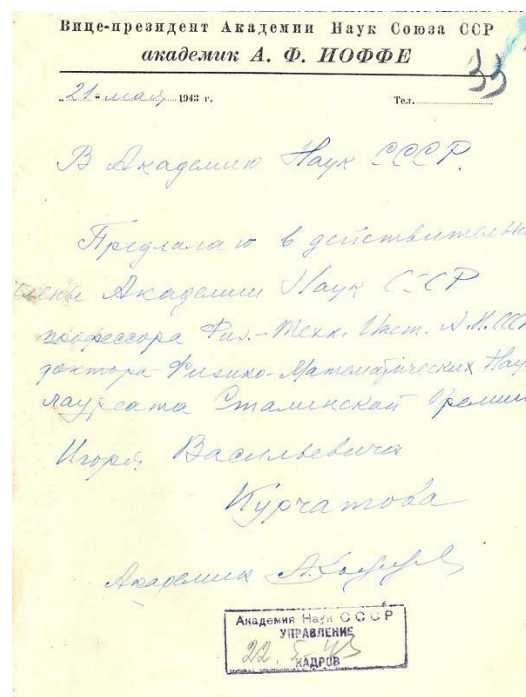 Вице-президент Академии Наук Союза ССР
академик А. Ф. ИОФФЕ
33
„21“ мая 1943 г. Тел.
В Академию Наук СССР.
Предлагаю в действительн
члены Академии Наук СССР
профессора Физ.-Техн. Инст. А.Н.ССС
доктора Физико-Математических Наук
лауреата Сталинской Премии
Игоря Васильевича
Курчатова
Академик А.Иоффе
Академия Наук СССР
УПРАВЛЕНИЕ
22. 5-43
КАДРОВ